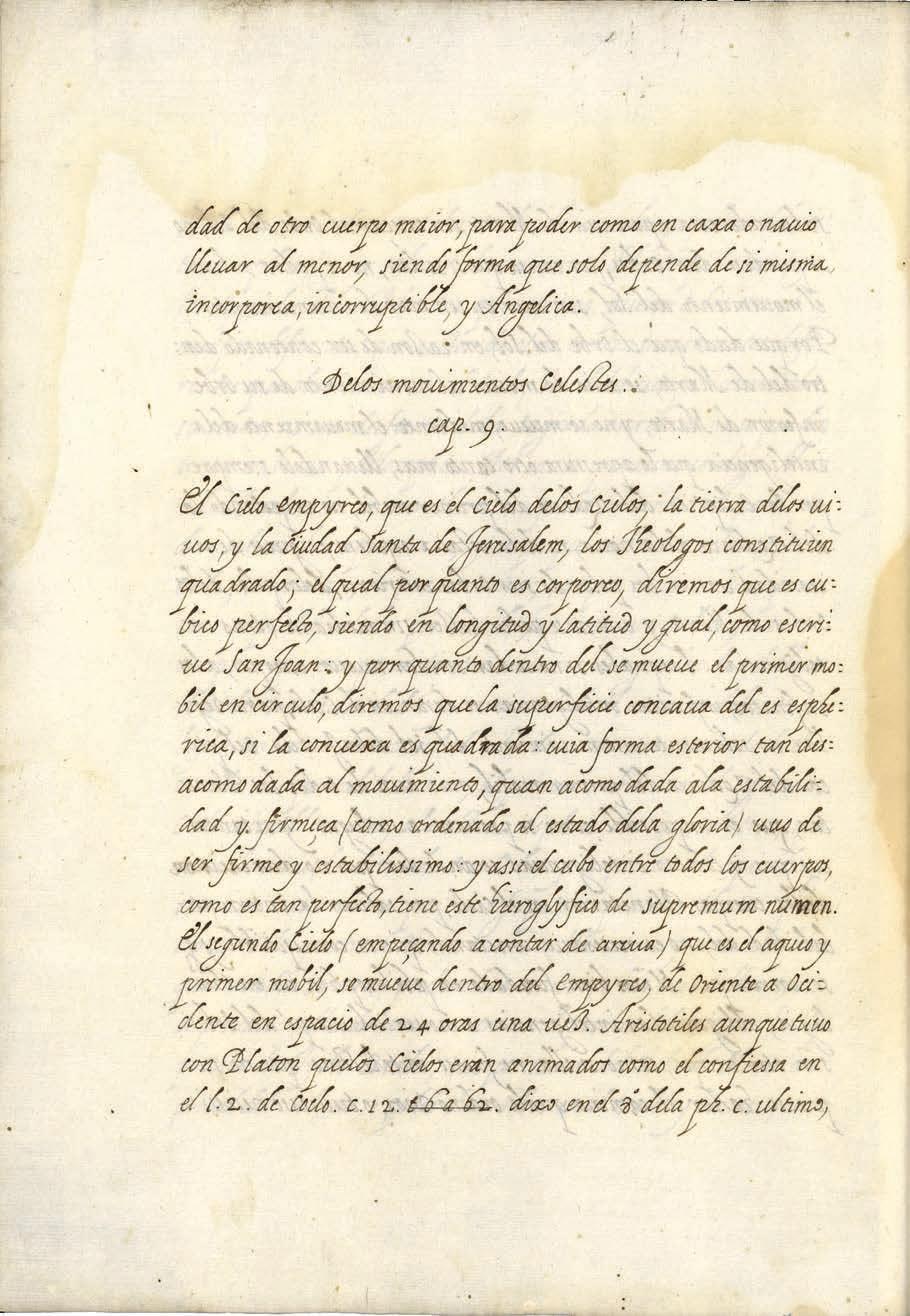 dad de otro cuerpo maior, para poder como en caxa o nauio
lleuar al menor, siendo forma que solo depende de si misma,
incorporea, incorruptible, y Angelica.
Delos mouimientos Celestes.
cap. 9.
El Cielo empyreo, que es el cielo delos Cielos, la tierra delos ui-
uos, y la Ciudad Santa de Jerusalem, los Theologos constituien
quadrado; el qual por quanto es corporeo, diremos que es cu-
bico perfecto, siendo en longitud y latitud ygual, como escri-
ue San Joan: y por quanto dentro del se mueve el primer mo-
bil en circulo, diremos que la superficie concaua del es esphe-
rica, si la conuexa es quadrada: cuia forma esterior tan des-
acomodada al mouimiento, quan acomodada ala estabili-
dad y firmeça (como ordenado al estado dela gloria) uuo de
ser firme y estabilissimo: y assi el cubo entre todos los cuerpos,
como es tan perfecto, tiene este hieroglyfico de supremum numen.
El segundo Cielo (empeçando a contar de ariua) que es el aqueo y
primer mobil, se mueve dentro del Empyreo, de Oriente a Oci-
dente en espacio de 24 oras una ues. Aristotiles aunque tuuo
con Platon quelos Cielos eran animados como el confiessa en
el l. 2. de Coelo. c. 12. t 6 a 62. dixo en el 8º dela ph. c. ultimo,